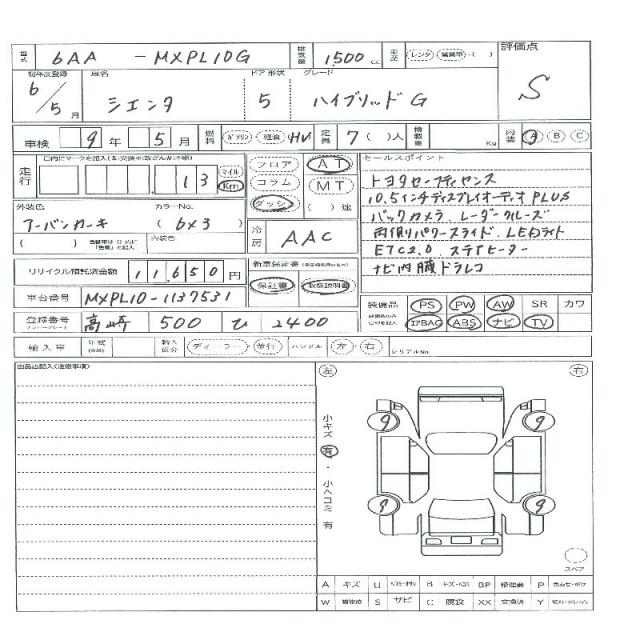 型式 6AA - MXPL10G 排気量 1,500 cc 車歴 レンタ・営業車・( ) 評価点
S
初年次登録 車名 ドア 形状 グレード
6/5月 シエンタ 5 ハイブリッドG
車検 9年 5月 燃料 ガソリン 軽油 HV 定員 7 ( )人 積載量 Kg 内装 A B C
走行 13 マイル Km
フロア AT
コラム MT
ダッシュ ( )速
セールスポイント
トヨタセーフティセンス
10.5インチディスプレイオーディオPLUS
バックカメラ、レーダークルーズ
両側パワースライド、LEDライト
ETC2.0、ステアヒーター
ナビ内臓ドラレコ
外装色 カラーNo.
アーバンカーキ (6x3)
( ) 内装色
冷房 AAC
リサイクル預託済金額 11650円
新車保証書
保証書 取扱説明書
車台番号 MXPL10-1137531
装備品 PS PW AW SR カワ
エアBAG ABS ナビ TV
登録番号 高崎 500 ひ 2400
輸入車 年式 輸入区分 ディーラー・並行 ハンドル 左・右 シリアルNo.
出品店記入(注意事項)
左 右
小キズ 有・小ヘコミ 有
9 9
9 9
スペア
A キズ U B BP 修理跡 P
W 補修跡 S サビ C 腐食 XX 交換済 Y